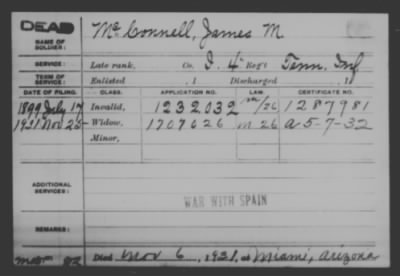 DEAD
NAME OF SOLDIER: McConnell, James M
SERVICE: Late rank, Co. I. 4" Reg't Tenn. Inf
TERM OF SERVICE: Enlisted , 1 Discharged , 1
DATE OF FILING. CLASS. APPLICATION NO. LAW. CERTIFICATE NO.
1899 July 17 Invalid, 1232032 m/26 1287981
1931 Nov 25 Widow, 1707626 m 26 a 5-7-32
Minor,
ADDITIONAL SERVICES:
WAR WITH SPAIN
REMARKS:
Died Nov 6, 1931, at Miami, Arizona